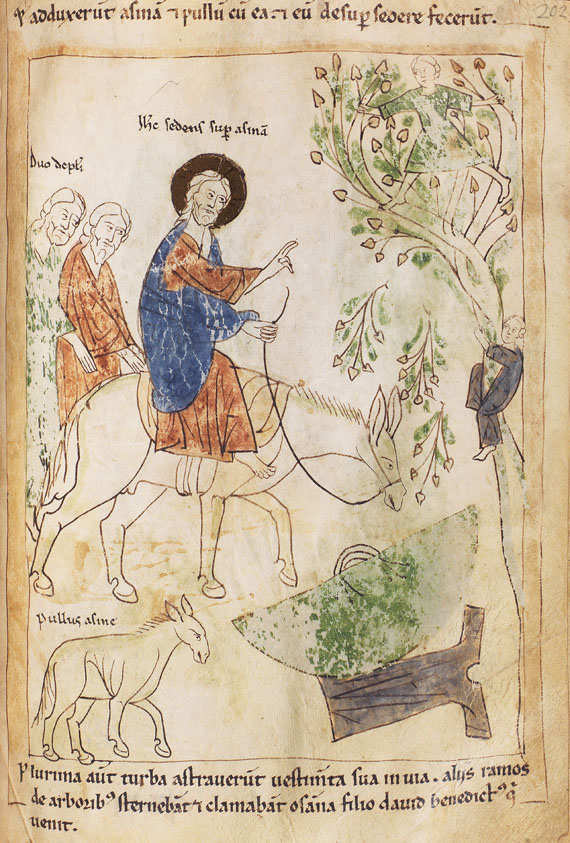 ⁊ adduxerūt asinā ⁊ pullū cū ea ⁊ eū desuꝑ sedere fecerūt.
202
Ihc sedens suꝑ asinā
Duo dcpłi
pullus asine
Plurima aūt turba astraverūt vestim̄ta sua in via. alijs ramos
de arboribꝰ sternebāt ⁊ clamabāt osāna filio david benedictꝰ q̄
venit.